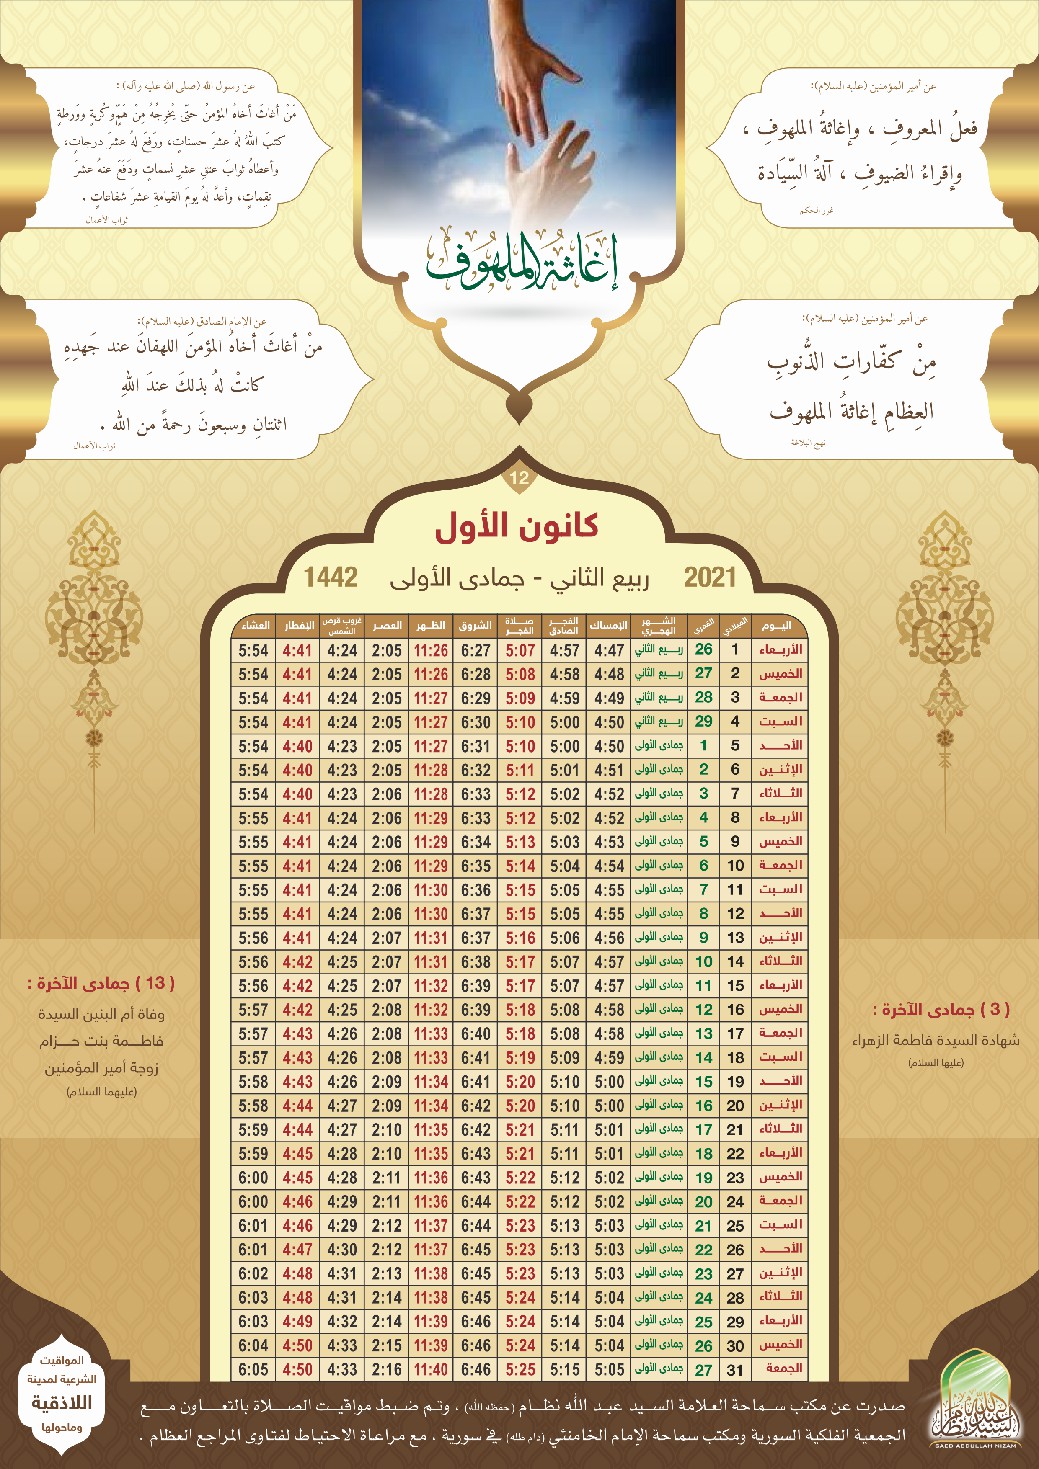 عن أمير المؤمنين (عليه السلام):
فعلُ المعروفِ ، وإغاثةُ الملهوفِ ،
وإقراءُ الضيوفِ ، آلةُ السِّيَادة
غرر الحكم
عن رسول الله (صلى الله عليه وآله) :
مَنْ أغاثَ أخاهُ المؤمنُ حتّى يُخرِجُهُ مِنْ هَمٍّ وكُربةٍ ووَرطةٍ
كتبَ اللهُ لهُ عشرَ حسناتٍ، ورَفعَ لهُ عشرَ درجاتٍ،
وأعطاهُ ثوابَ عتقِ عشرِ نسماتٍ ودَفَعَ عنهُ عشرَ
نِقِماتٍ، وأعدَّ لهُ يومَ القيامةِ عشرَ شفاعاتٍ .
ثواب الأعمال
إغاثة الملهوف
عن أمير المؤمنين (عليه السلام):
مِنْ كفّاراتِ الذُّنوبِ
العِظامِ إغاثةُ الملهوف
نهج البلاغة
عن الامام الصادق (عليه السلام):
منْ أغاثَ أخاهُ المؤمنَ اللهفانَ عند جَهدِهِ
كانتْ لهُ بذلكَ عندَ اللهِ
اثنتانِ وسبعونَ رحمةً من الله .
ثواب الأعمال
12
كانون الأول
2021 ربيع الثاني - جمادى الأولى 1442
اليوم الميلادي القمري الشهر الهجري الإمساك الفجر الصادق صلاة الفجر الشروق الظهر العصر غروب قرص الشمس الإفطار العشاء
الأربعاء 1 26 ربيع الثاني 4:47 4:57 5:07 6:27 11:26 2:05 4:24 4:41 5:54
الخميس 2 27 ربيع الثاني 4:48 4:58 5:08 6:28 11:26 2:05 4:24 4:41 5:54
الجمعة 3 28 ربيع الثاني 4:49 4:59 5:09 6:29 11:27 2:05 4:24 4:41 5:54
السبت 4 29 ربيع الثاني 4:50 5:00 5:10 6:30 11:27 2:05 4:24 4:41 5:54
الأحد 5 1 جمادى الأولى 4:50 5:00 5:10 6:31 11:27 2:05 4:23 4:40 5:54
الإثنين 6 2 جمادى الأولى 4:51 5:01 5:11 6:32 11:28 2:05 4:23 4:40 5:54
الثلاثاء 7 3 جمادى الأولى 4:52 5:02 5:12 6:33 11:28 2:06 4:23 4:40 5:54
الأربعاء 8 4 جمادى الأولى 4:52 5:02 5:12 6:33 11:29 2:06 4:24 4:41 5:55
الخميس 9 5 جمادى الأولى 4:53 5:03 5:13 6:34 11:29 2:06 4:24 4:41 5:55
الجمعة 10 6 جمادى الأولى 4:54 5:04 5:14 6:35 11:29 2:06 4:24 4:41 5:55
السبت 11 7 جمادى الأولى 4:55 5:05 5:15 6:36 11:30 2:06 4:24 4:41 5:55
الأحد 12 8 جمادى الأولى 4:55 5:05 5:15 6:37 11:30 2:06 4:24 4:41 5:55
الإثنين 13 9 جمادى الأولى 4:56 5:06 5:16 6:37 11:31 2:07 4:24 4:41 5:56
الثلاثاء 14 10 جمادى الأولى 4:57 5:07 5:17 6:38 11:31 2:07 4:25 4:42 5:56
الأربعاء 15 11 جمادى الأولى 4:57 5:07 5:17 6:39 11:32 2:07 4:25 4:42 5:56
الخميس 16 12 جمادى الأولى 4:58 5:08 5:18 6:39 11:32 2:08 4:25 4:42 5:57
الجمعة 17 13 جمادى الأولى 4:58 5:08 5:18 6:40 11:33 2:08 4:26 4:43 5:57
السبت 18 14 جمادى الأولى 4:59 5:09 5:19 6:41 11:33 2:08 4:26 4:43 5:57
الأحد 19 15 جمادى الأولى 5:00 5:10 5:20 6:41 11:34 2:09 4:26 4:43 5:58
الإثنين 20 16 جمادى الأولى 5:00 5:10 5:20 6:42 11:34 2:09 4:27 4:44 5:58
الثلاثاء 21 17 جمادى الأولى 5:01 5:11 5:21 6:42 11:35 2:10 4:27 4:44 5:59
الأربعاء 22 18 جمادى الأولى 5:01 5:11 5:21 6:43 11:35 2:10 4:28 4:45 5:59
الخميس 23 19 جمادى الأولى 5:02 5:12 5:22 6:43 11:36 2:11 4:28 4:45 6:00
الجمعة 24 20 جمادى الأولى 5:02 5:12 5:22 6:44 11:36 2:11 4:29 4:46 6:00
السبت 25 21 جمادى الأولى 5:03 5:13 5:23 6:44 11:37 2:12 4:29 4:46 6:01
الأحد 26 22 جمادى الأولى 5:03 5:13 5:23 6:45 11:37 2:12 4:30 4:47 6:01
الإثنين 27 23 جمادى الأولى 5:03 5:13 5:23 6:45 11:38 2:13 4:31 4:48 6:02
الثلاثاء 28 24 جمادى الأولى 5:04 5:14 5:24 6:45 11:38 2:14 4:31 4:48 6:03
الأربعاء 29 25 جمادى الأولى 5:04 5:14 5:24 6:46 11:39 2:14 4:32 4:49 6:03
الخميس 30 26 جمادى الأولى 5:04 5:14 5:24 6:46 11:39 2:15 4:33 4:50 6:04
الجمعة 31 27 جمادى الأولى 5:05 5:15 5:25 6:46 11:40 2:16 4:33 4:50 6:05
( 3 ) جمادى الآخرة :
شهادة السيدة فاطمة الزهراء
(عليها السلام)
( 13 ) جمادى الآخرة :
وفاة أم البنين السيدة
فاطمة بنت حزام
زوجة أمير المؤمنين
(عليهما السلام)
صدرت عن مكتب سماحة العلامة السيد عبد الله نظام (حفظه الله) ، وتم ضبط مواقيت الصلاة بالتعاون مع
الجمعية الفلكية السورية ومكتب سماحة الإمام الخامنئي (دام ظله) في سورية ، مع مراعاة الاحتياط لفتاوى المراجع العظام .
المواقيت
الشرعية لمدينة
اللاذقية
وماحولها
السيد عبدالله نظام
SAED ABDULLAH NIZAM